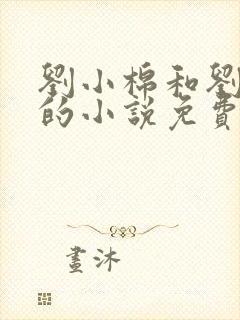 劉小棉和劉
的小説免費
畫沐